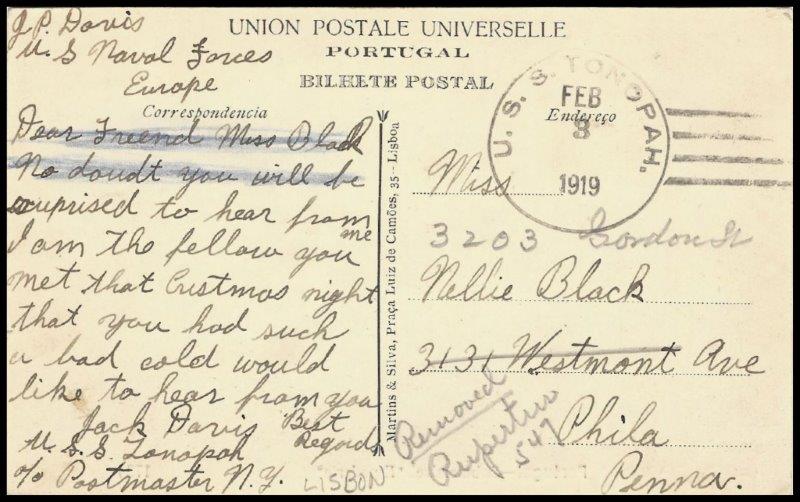 J. P. Davis
U. S Naval Forces
Europe
UNION POSTALE UNIVERSELLE
PORTUGAL
BILHETE POSTAL
Correspondencia
Endereço
U. S. S. TONOPAH.
FEB
8
1919
Dear Freend Miss Black
No doudt you will be
suprised to hear from
me
I am the fellow you
met that Cristmas night
that you had such
a bad cold would
like to hear from you
Jack Davis Best
Regards
U. S. S. Tonopah
c/o Postmaster N. Y.
LISBON
Martins & Silva, Praça Luiz de Camões, 35 – Lisboa
Miss
3203 Gordon St
Nellie Black
3131 Westmont Ave
Phila
Penna.
Removed
547